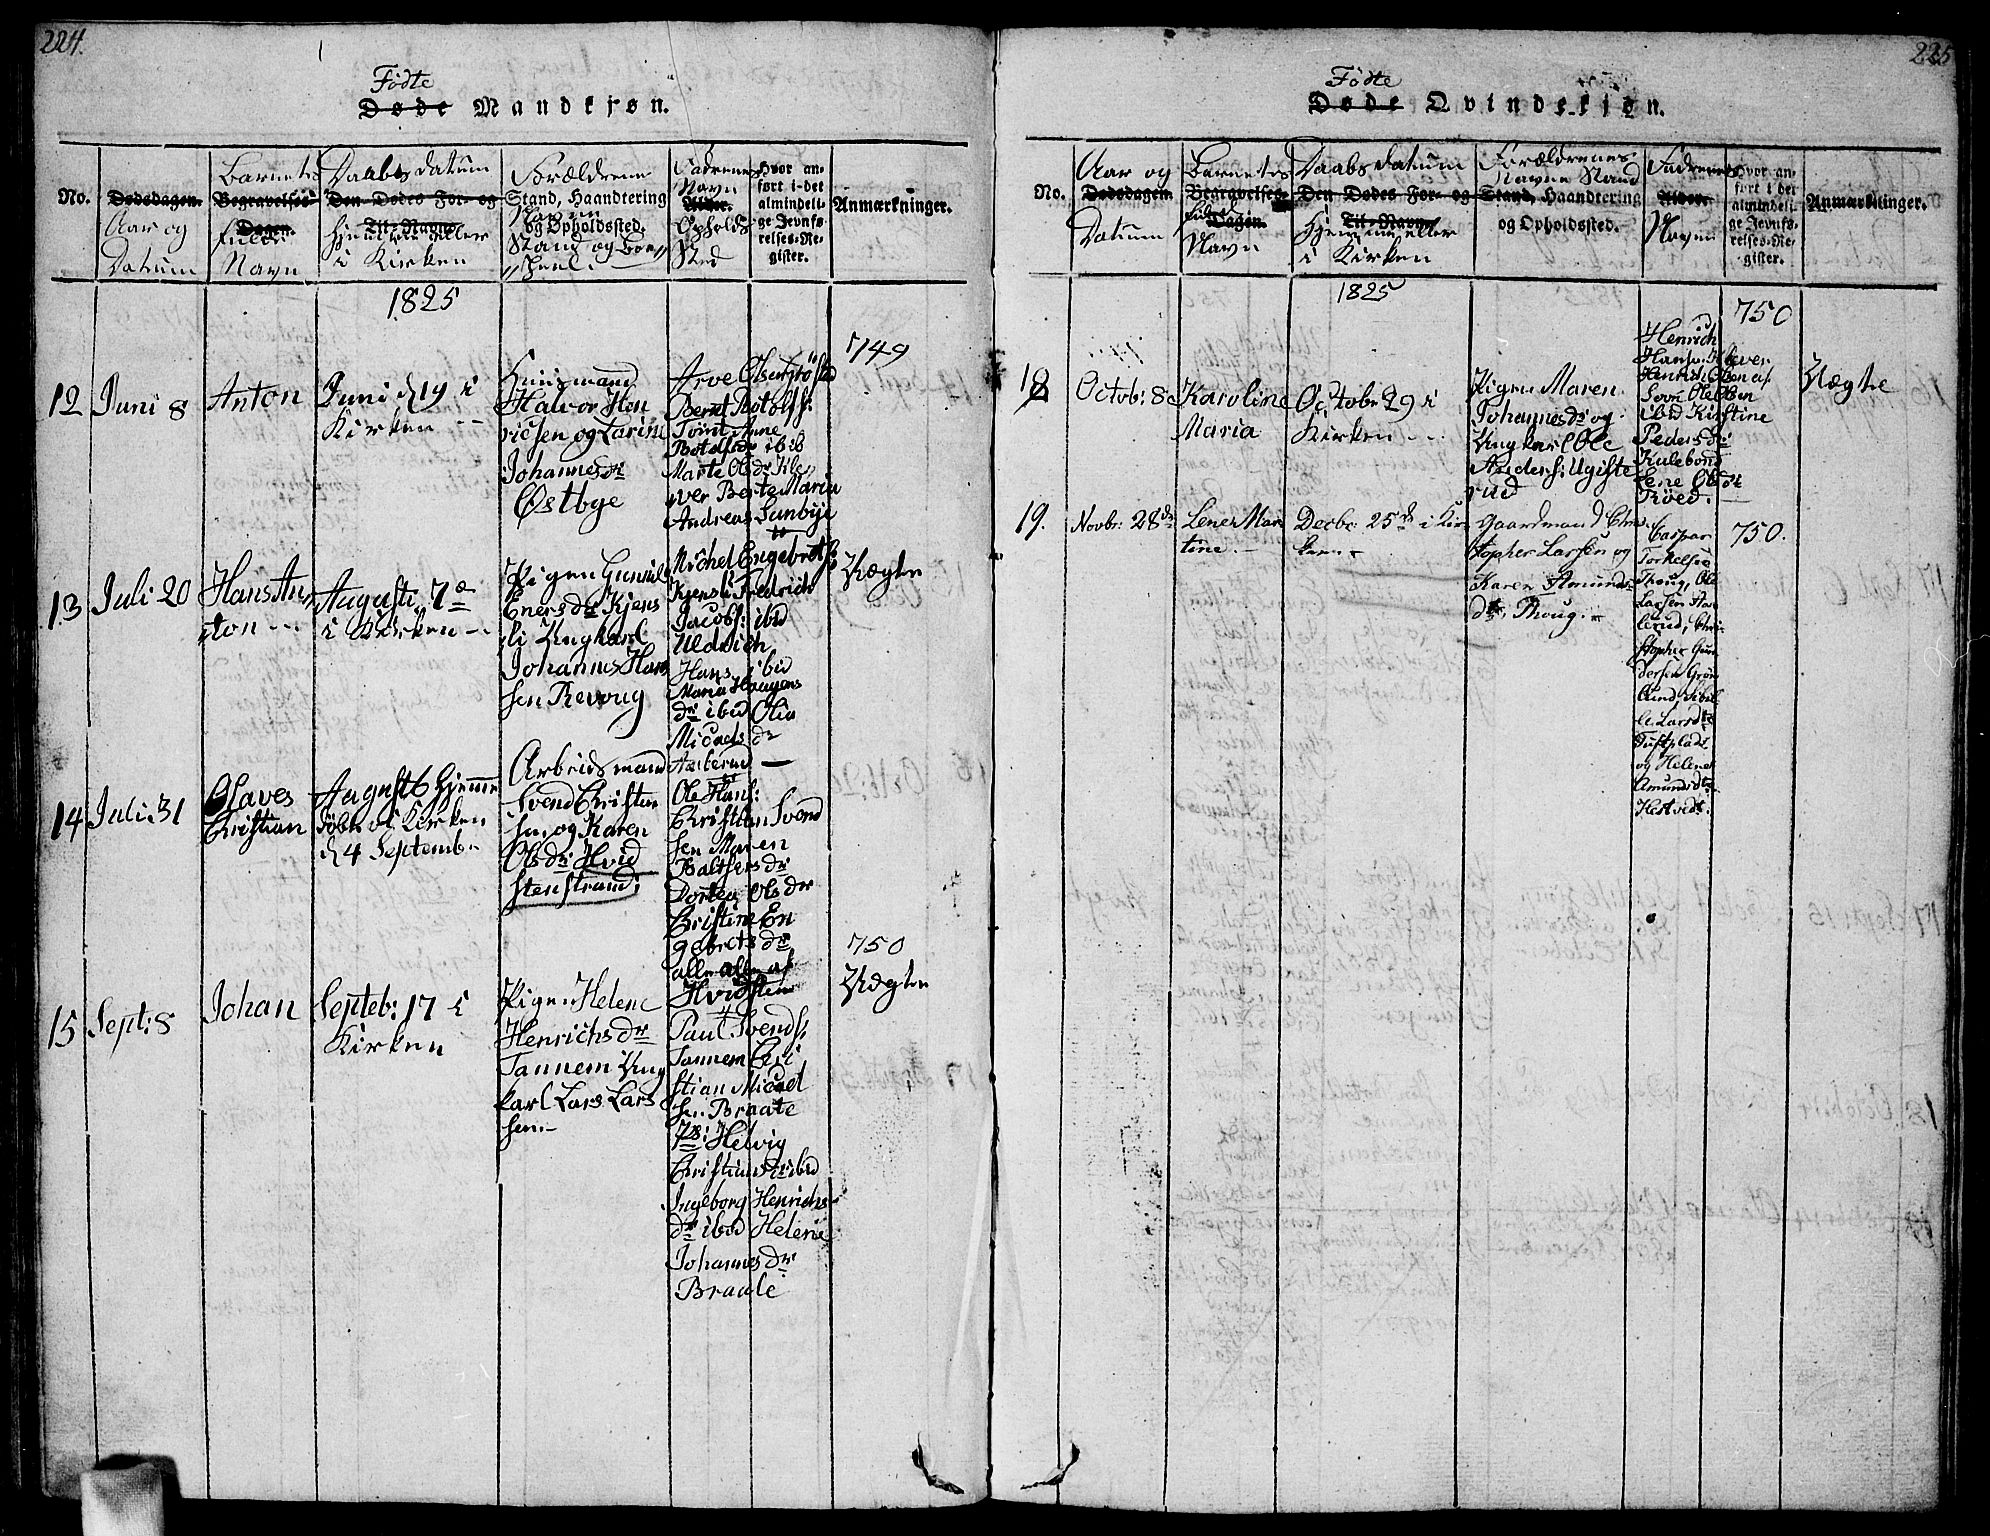 224.
Fødte
Døde Mandkjøn.
No.
Dødsdagen.
Aar og
Datum
Barnets
Begravelses-
Dagen.
fulde
Navn
Daabs datum
Den Dødes For- og
Til-Navn
hjemme eller
i Kirken
Forældrene
Stand, Haandtering
Navn
og Opholdssted.
Stand og
Fadrenes
Navn
Alder.
Opholds
Sted
Hvor an-
ført i det
almindeli-
ge Jevnfø-
relses-Re-
gister.
Anmærkninger.
1825
749
12
Juni 8
Anton
Juni d 19 i
Kirken
Huusmand
Halvor Hen
richsen og Karine
Johannesdr
Østbye
Arve Olsen
Bernt Botolfs:
Tomt Anne
Botolfsdr ibid
Marte Olsdr Kle
ver Berte Maria
Andreas Sunbye
13
Juli 20
Hans An
ton
Augusti 7de
i Kirken
Pigen Gunild
Enersdr Kjens
li Ungkarl
Johannes Han
sen Revoug
Michel Engebrets:
Kjensli Fredrich
Jacobs: ibid
Uldrich
Hans ibid
Maria Haagens
dr ibid Olia
Micaelsdr
Aaserud
Uægte
14
Juli 31
Olaves
Christian
August 6 hjemme
døbt i Kirken
d 4 Septemb.
Arbeidsmand
Svend Christen
sen og Karen
Olsdr Hvid
stenstrand
Ole Hans:
Christian Svend
sen Maren
Baltsersdr
Dortea Olsdr
Christine En
gebretsdr
alle af
Hvidsten
750
Uægte
15
Sept: 8
Johan
Septeb: 17 i
Kirken
Pigen Helene
Henrichsdr
Tannem Ung
karl Lars Lars
sen.
Paul Svends:
Tannem Chri
stian Micael
sen Braate
Helvig
Christiansdr ibid
Ingeborg Henrichs
dr ibid Helene
Johannesdr
Braate
225
Fødte
Døde Qvindekjøn.
No.
Aar og
Dødsdagen
Datum
Barnets
Begravelses-
fulde
Dagen.
Navn
Daabs datum
Den Dødes For- og
Til-Navn
Hjemme eller
i Kirken
Forældrenes
Navne Stand
Stand, Haandtering
og Opholdssted.
Fadrenes
Alder.
Navn
Hvor an-
ført i det
almindeli-
ge Jevnfø-
relses-Re-
gister.
Anmærkninger.
1825
750
18
Octob: 8
Karoline
Maria
October 29 i
Kirken
Pigen Maren
Johannesdr og
Ungkarl Ole
Anders: Ugiste
rud
Henrich
Hans: Klever
Henrich Olsen af
Ole Olsen
ibid Kirstine
Pedersdr
Kulebond
Lene Olsdr
Røed.
Uægte
19.
Novbr: 28de
Lene Mar
tine.
Decbr: 25de i Kir
ken
Gaardmand Chris
topher Larsen og
Karen Amunds
dtr. Thoug.
Caspar
Torkelsen
Thoug, Ole
Larsen Aas
lerud, Chri
stopher Gun
dersen Grøn
lund, Sibil
le Larsdtr
Tuftplads
og Helene
Amundsdtr
Hestvedt.
750.